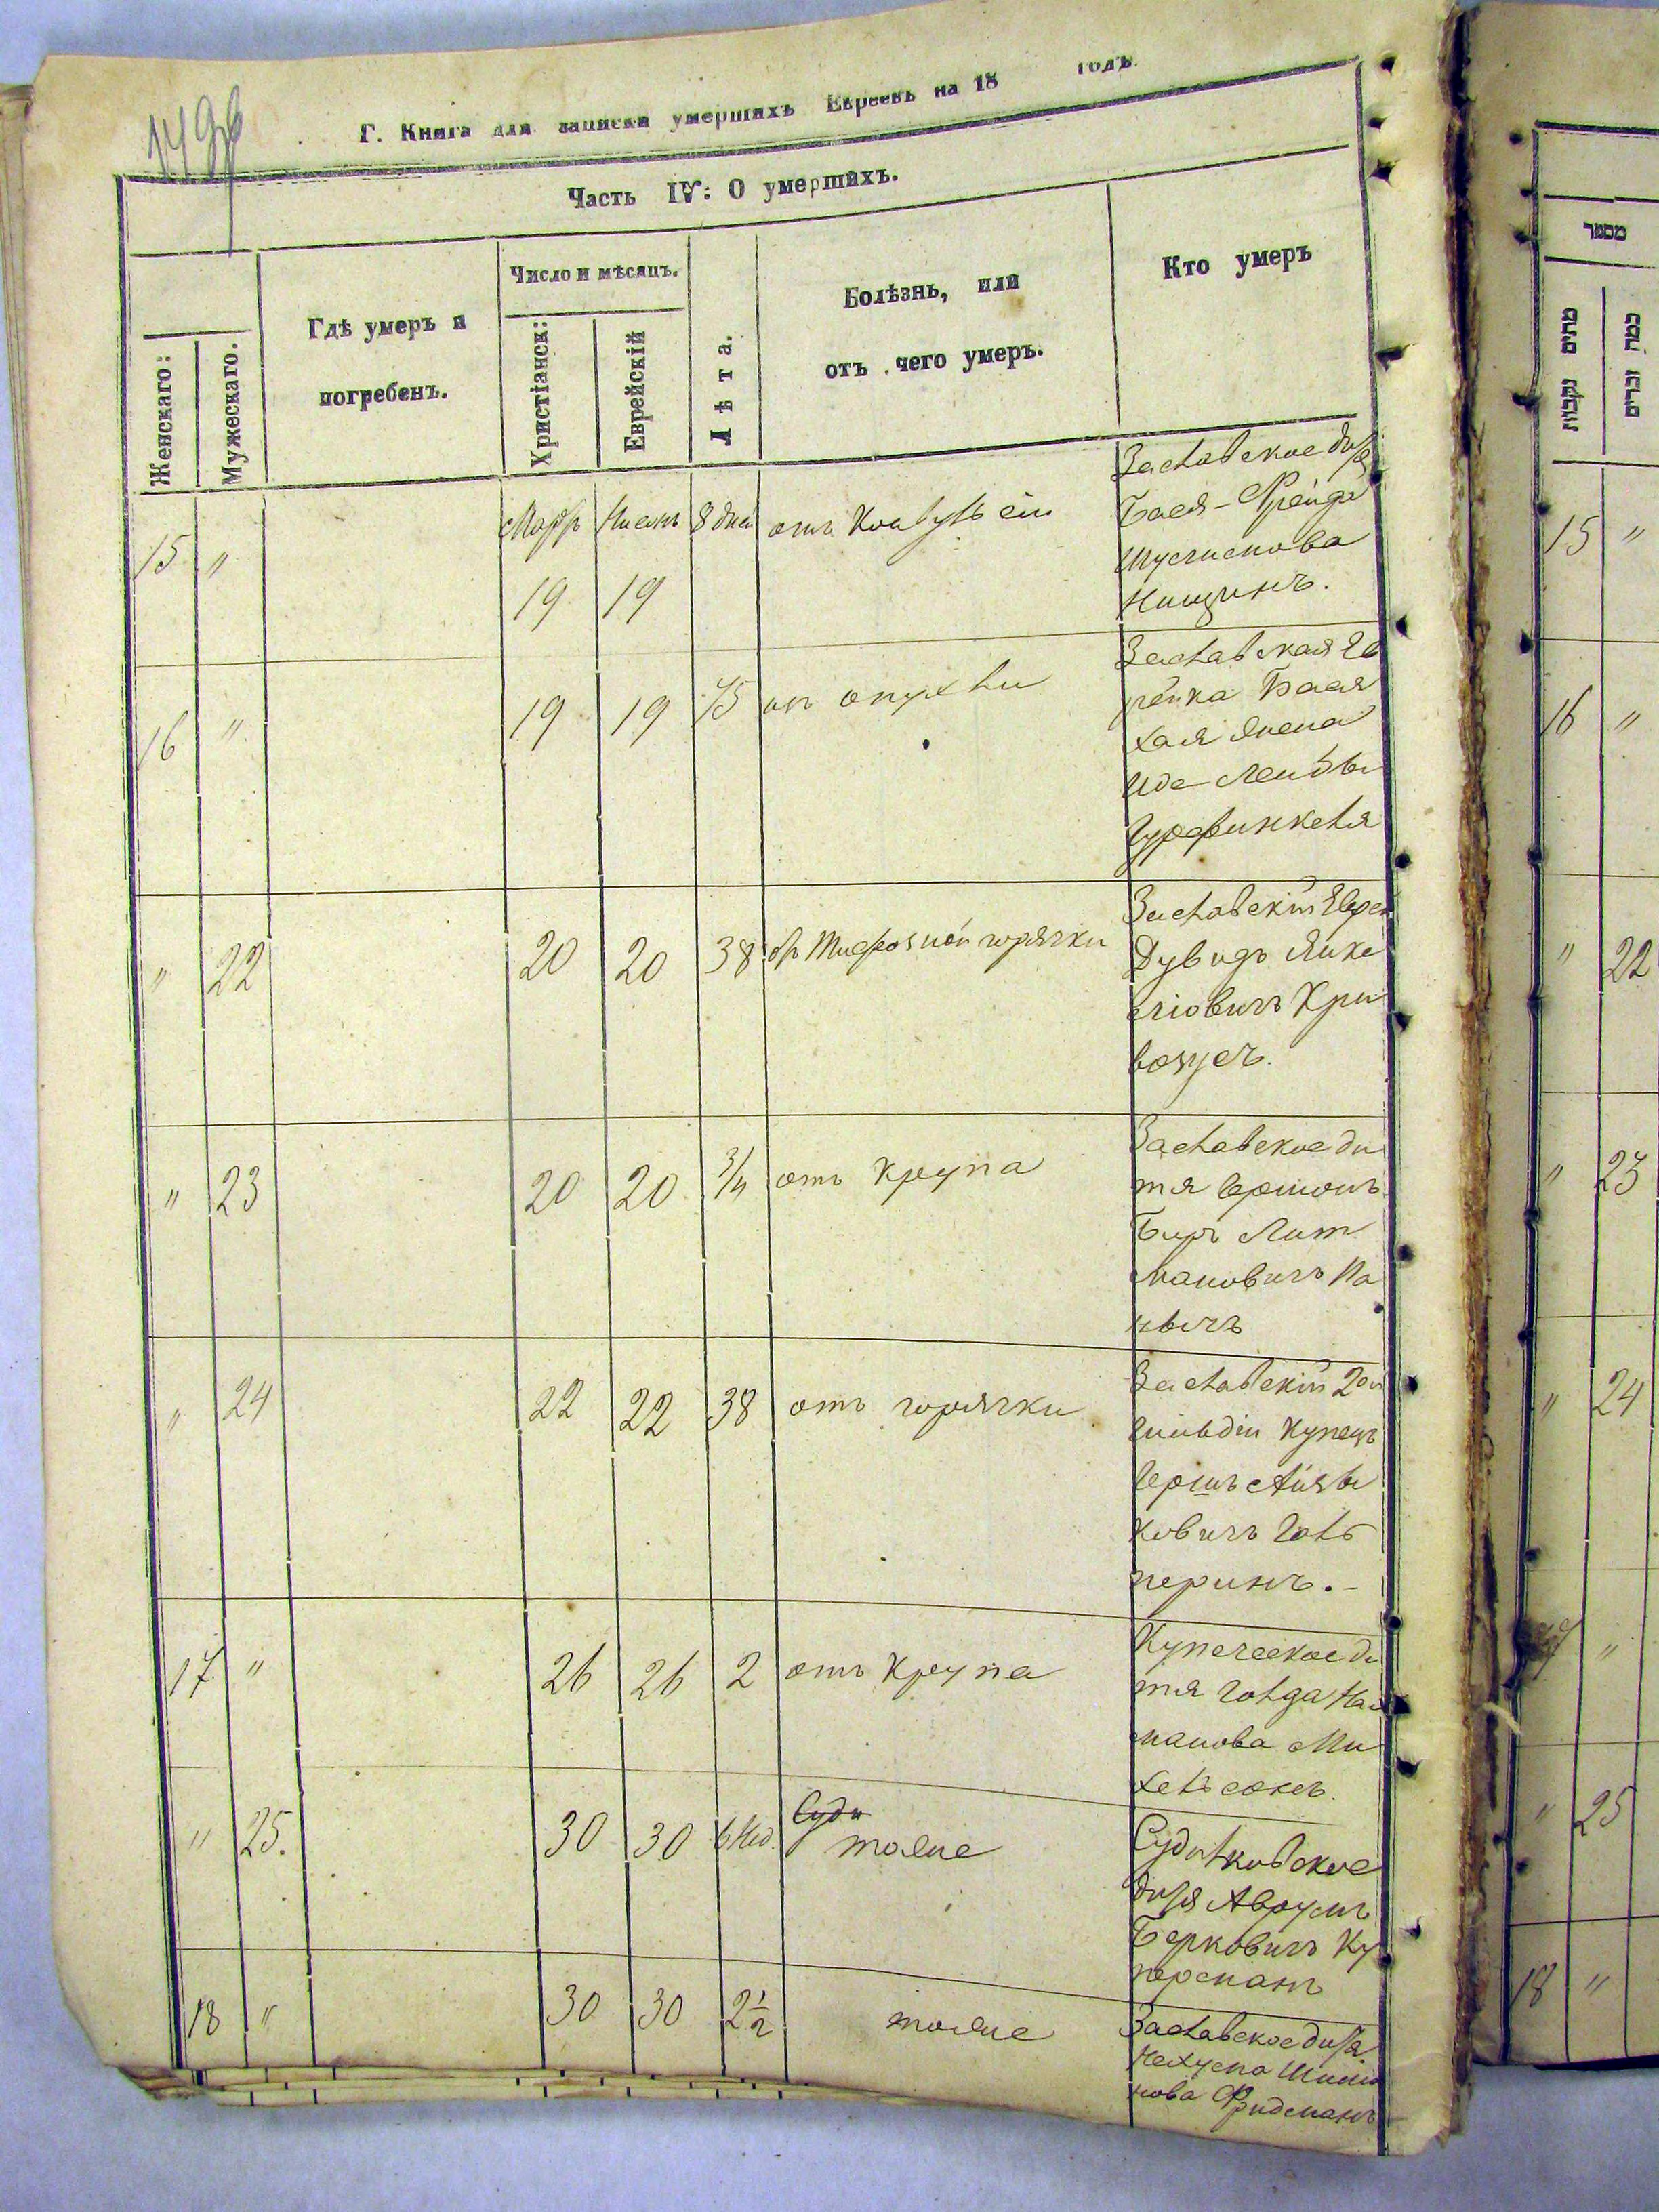 Г. Книга для записки умершихъ Евреевъ на 18 годъ.
Часть IV: О умершихъ.
Женскаго:
Мужескаго.
Гдѣ умеръ и
погребенъ.
Число и мѣсяцъ.
Христіанск:
Еврейскій
Лѣта.
Болѣзнь, или
отъ чего умеръ.
Кто умеръ
15 " Мартъ Нисонъ 8 дней отъ
19 19
Заславское дитя
Бася-Фрейда
Нищинъ.
16 " 19 19 75 отъ опухли
Заславская Ев
рейка Бася
Хая жена
Иде-Лейбы
Гурфинкеля
" 22 20 20 38 отъ тифозной горячки
Заславскій Еврей
Дувидъ Янке
ліовичъ Кри
" 23 20 20 3/4 отъ крупа
Заславское ди
тя Гершонъ
Беръ Лит
мановичъ Па
нычъ
" 24 22 22 38 отъ горячки
Заславскій 2ой
гильдіи купецъ
Гершъ
ковичъ Галь
перинъ.-
17 " 26 26 2 отъ крупа
Купеческое ди
тя Голда Нах
манова Ми
хельсонъ.
" 25. 30 30 6 нед. Суди тоже
Судилковское
дитя Аврумъ
Берковичъ Ку
перманъ
18 " 30 30 2 1/2 тоже
Заславское дитя
Нехума Шимо
нова Фридманъ
מספר
מתים נקבות
כמה זכרים
15 "
16 "
" 22
" 23
" 24
"
" 25
18 "